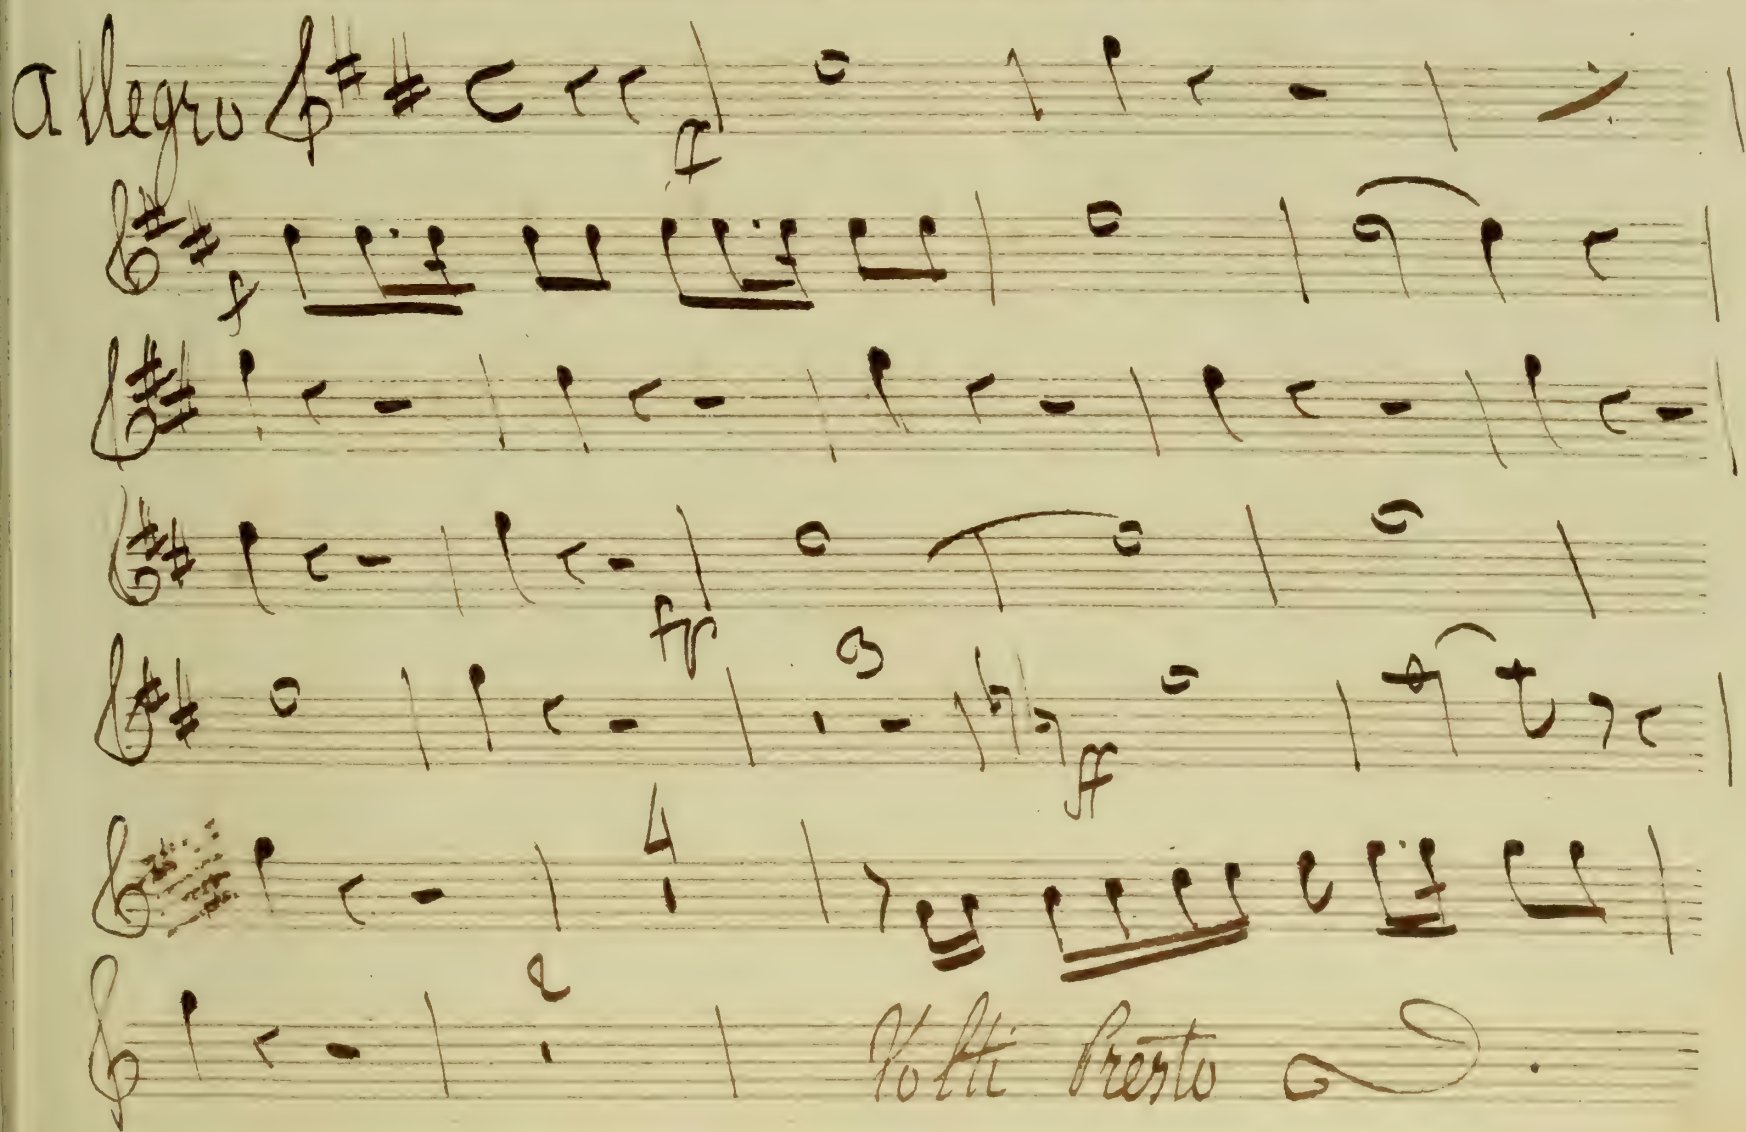 Allegro
ff
f
fp
3
ff
4
2
Volti Presto